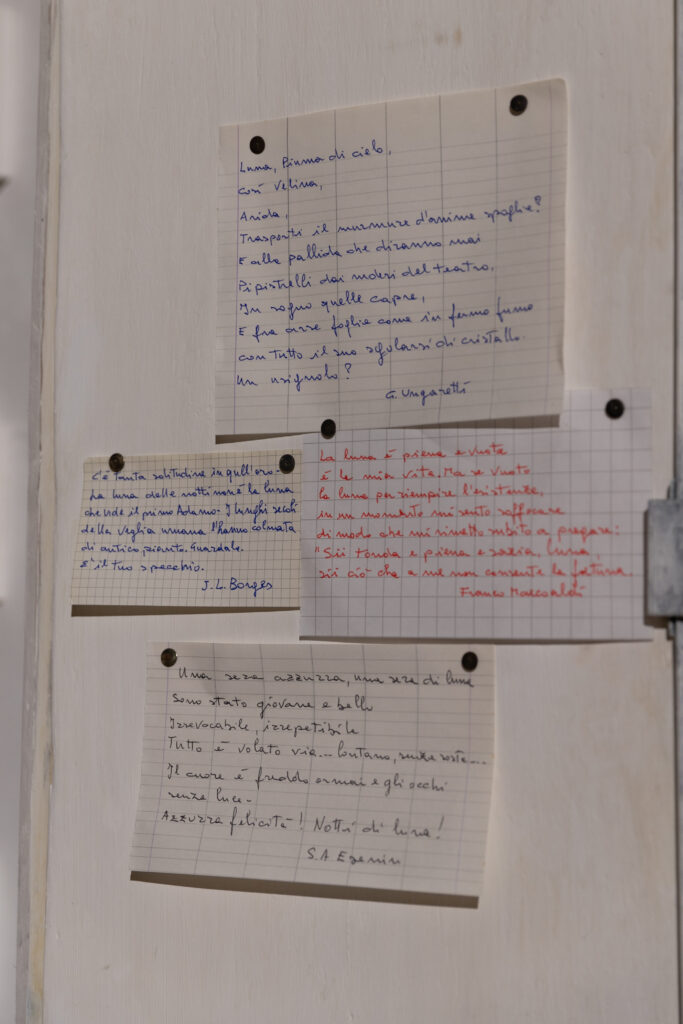 Luna, Piuma di cielo,
così Velina,
Arida,
Trasporti il murmure d'anime spoglie?
E alla pallida che diranno mai
Pipistrelli dai ruderi del teatro,
In sogno quelle capre,
E fra arse foglie come in fermo fumo
con tutto il suo sgolarsi di cristallo
Un usignolo?
G. Ungaretti
C'è tanta solitudine in quell'oro.
La luna delle notti non è la luna
che vide il primo Adamo. I lunghi secoli
della veglia umana l'hanno colmata
di antico pianto. Guardala.
E' il tuo specchio.
J.L. Borges
La luna è piena e vuota
è la mia vita. Ma se vuoto
la luna per riempire l'esistenza,
in un momento mi sento soffocare
di modo che mi rimetto subito a pregare:
"Sii tonda e piena e sazia, luna,
sii ciò che a me non consente la fortuna.
Franco Marcoaldi
Una sera azzurra, una sera di luna
Sono stato giovane e bello
Irrevocabile, irrepetibile
Tutto è volato via... lontano, senza sosta...
Il cuore è freddo ormai e gli occhi
senza luce.
Azzurra felicità! Notti di luna!
S.A Esenin